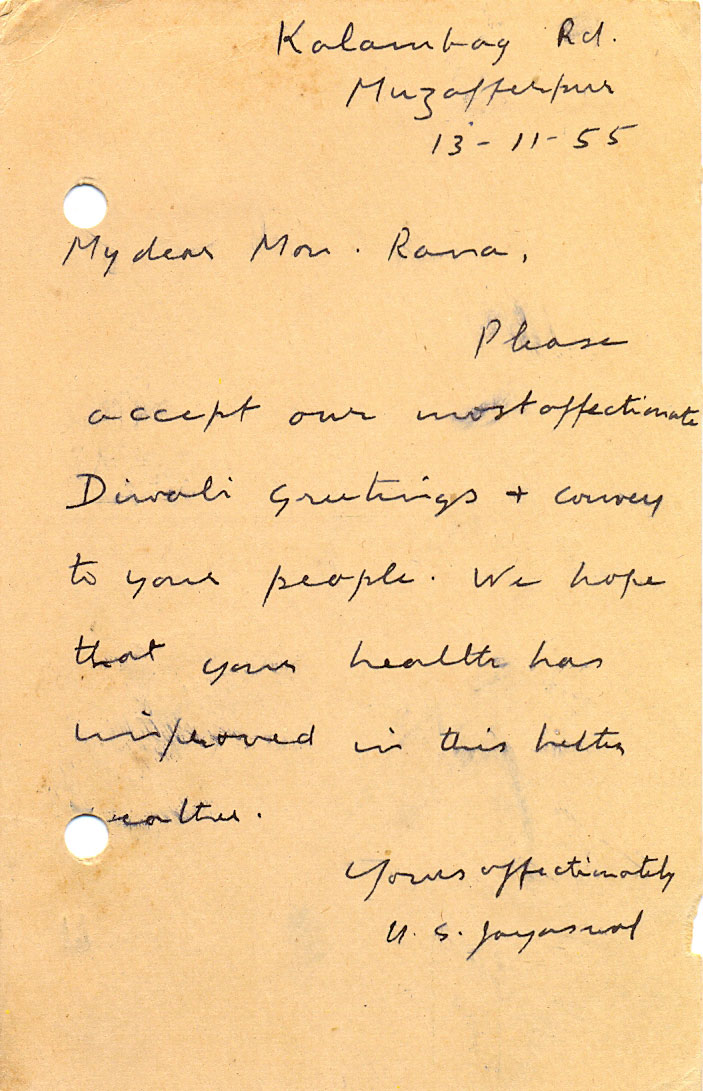 Kalambag Rd.
Muzafferpur
13-11-55
My dear Mon. Rana,
Please
accept our most affectionate
Diwali Greetings + convey
to your people. We hope
that your health has
improved in this better
weather.
Yours affectionately
U. S. Jayaswal